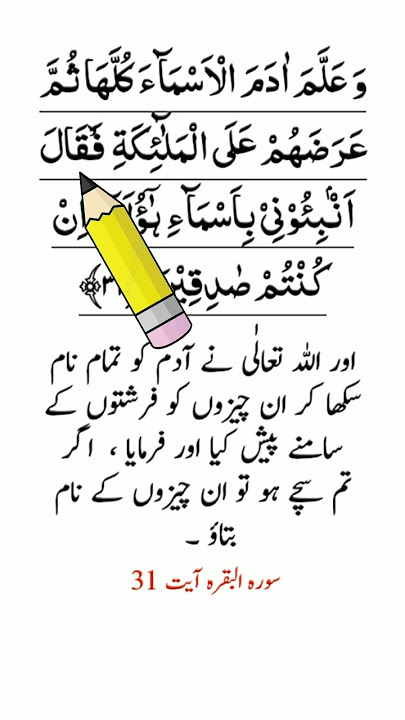 وَ عَلَّمَ اٰدَمَ الْاَسْمَآءَ كُلَّهَا ثُمَّ
عَرَضَهُمْ عَلَى الْمَلٰٓئِكَةِ فَقَالَ
اَنْۢبِـُٔوْنِیْ بِاَسْمَآءِ اِنْ
كُنْتُمْ
اور اللہ تعالٰی نے آدم کو تمام نام
سکھا کر ان چیزوں کو فرشتوں کے
سامنے پیش کیا اور فرمایا ، اگر
تم سچے ہو تو ان چیزوں کے نام
بتاؤ ۔
سورہ البقرہ آیت 31